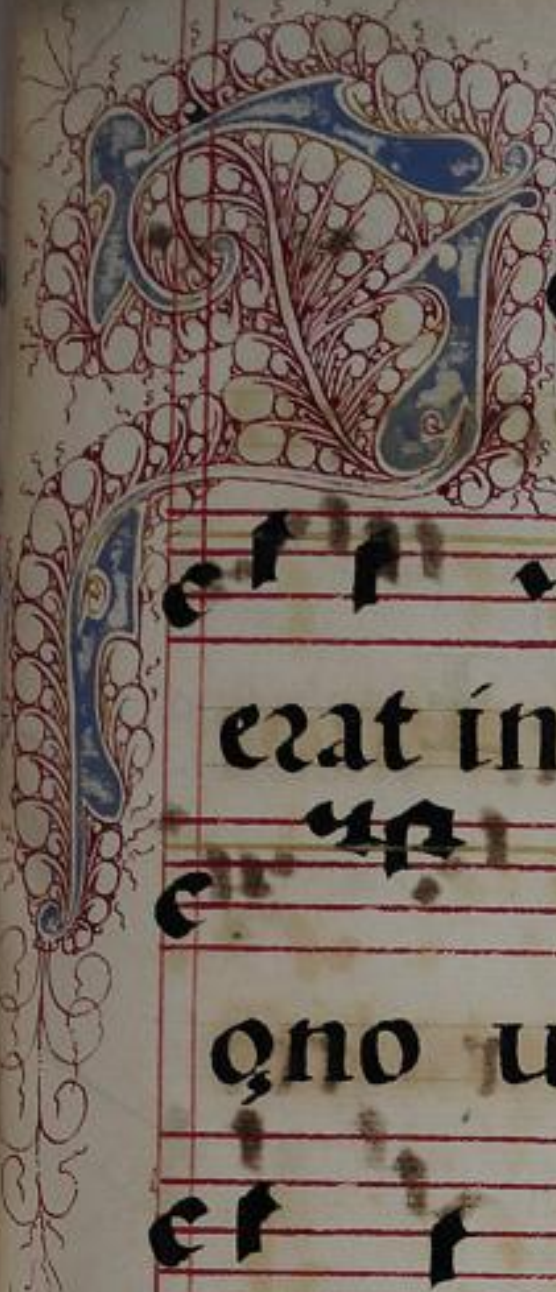 erat in
gno u